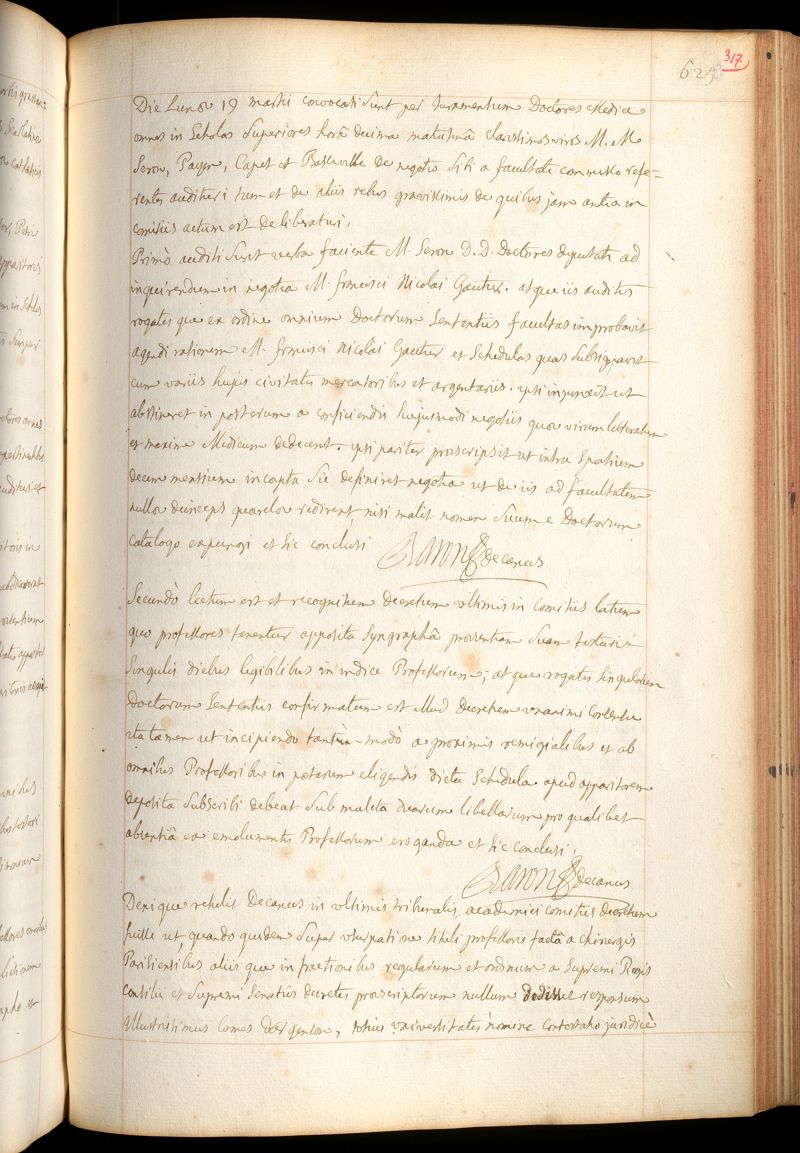 624 317
Die Lunae 19 martii convocati sunt per Juramentum Doctores Medici
omnes in Scholas Superiores horâ decima matutinâ clarissimos viros M. M
Seron, Payen, Capet et Baskeville de negotio sibi a facultate commisso refe=
rentes audituri tum et de aliis rebus gravissimis de quibus jam antea in
comitiis actum est deliberaturi.
Primò auditi sunt verba faciente M. Seron D. D. Doctores deputati ad
inquirendum in negotia M. francisci Nicolai Gautier. atque iis auditis
rogatis que ex ordine omnium Doctorum Sententiis facultas improbavit
agendi rationem M. francisci Nicolai Gautier et Schedulas quas subsignavit
cum variis hujus civitatis mercatoribus et argentariis. ipsi injunxit ut
abstineret in posterum a conficiendis hujusmodi negotiis quae virum litteratum
et maxime Medicum dedecent. ipsi pariter praescripsit ut intra spatium
decem mensium incepta sic definiret negotia ut de iis ad facultatem
nullae deinceps querelae redirent, nisi malit nomen suum e Doctorum
catalogo expungi et sic conclusi Baron decanus
Secundò lectum est et recognitum decretum ultimis in comitiis latum
quo professores tenentur apposita syngraphâ praesentiam suam testari
singulis diebus legibilibus in indice Professorum; atque rogatis singulorum
Doctorum sententiis confirmatum est illud decretum unanimi consensu
ita tamen ut incipiendo tantùm-modò a proximis remigialibus et ab
omnibus Professoribus in posterum eligendis dicta Schedula apud apparitorem
deposita subscribi debeat sub mulcta duarum libellarum pro qualibet
absentiâ ex emolumentis Professorum eroganda et sic conclusi.
Baron decanus
Denique retulit Decanus in ultimis tribunalis academici comitiis decretum
fuisse ut quando quidem super usurpatione tituli professoris factâ a chirurgis
Parisiensibus aliis que infractionibus regularum et ordinum a Supremi Regis
consilii et supremi Senatûs decretis praescriptorum nullum dedisset responsum
illustrissimus Comes d'argenson, totius universitatis nomine contestatio juridicè